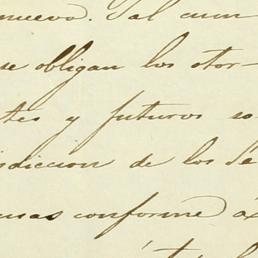 nuevo. Tal cum
se obligan los otor-
tes y futuros so
isdiccion de los Se
usas conforme á